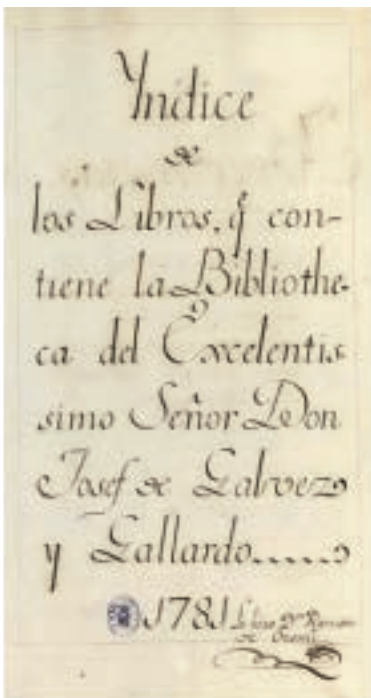 Yndice
de
los Libros, q̃ con-
tiene la Bibliothe-
ca del Excelentis
simo Señor Don
Josef de Galvez
y Gallardo.....
1781 Lo hizo Dn Ramon
de